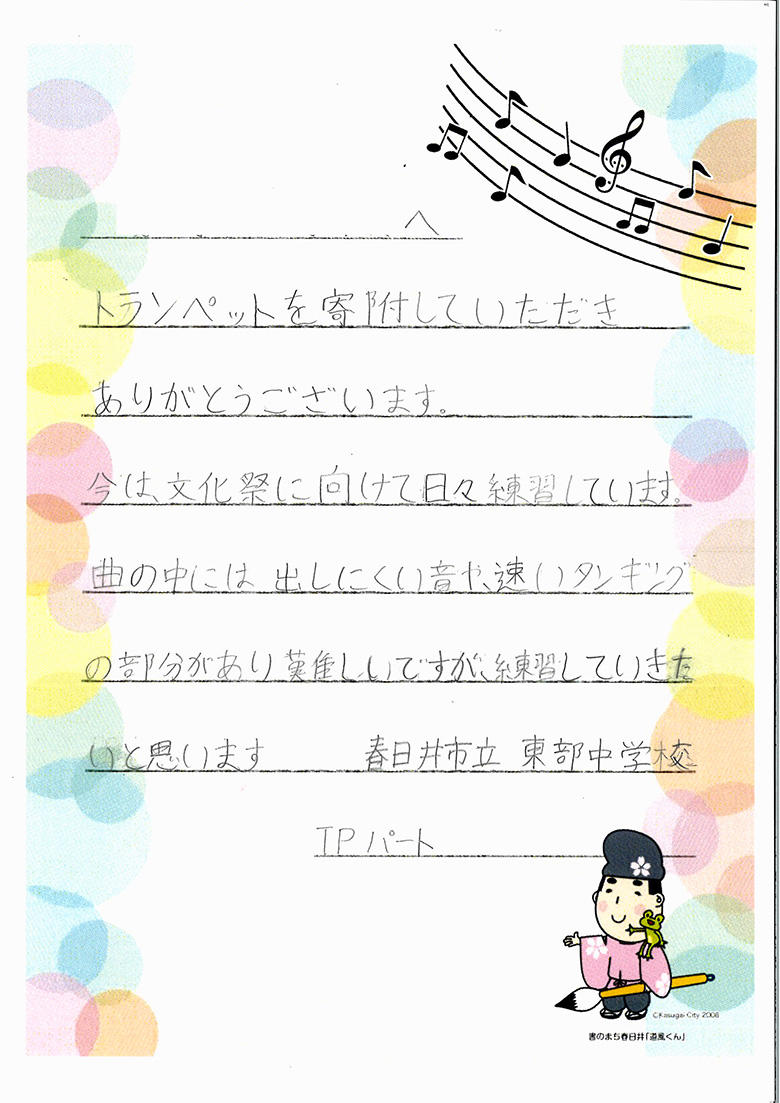 へ
トランペットを寄附していただき
ありがとうございます。
今は、文化祭に向けて日々練習しています。
曲の中には 出しにくい音や、速いタンギング
の部分があり難しいですが、練習していきた
いと思います　　　春日井市立 東部中学校
TPパート
©Kasugai City 2008
書のまち春日井「道風くん」